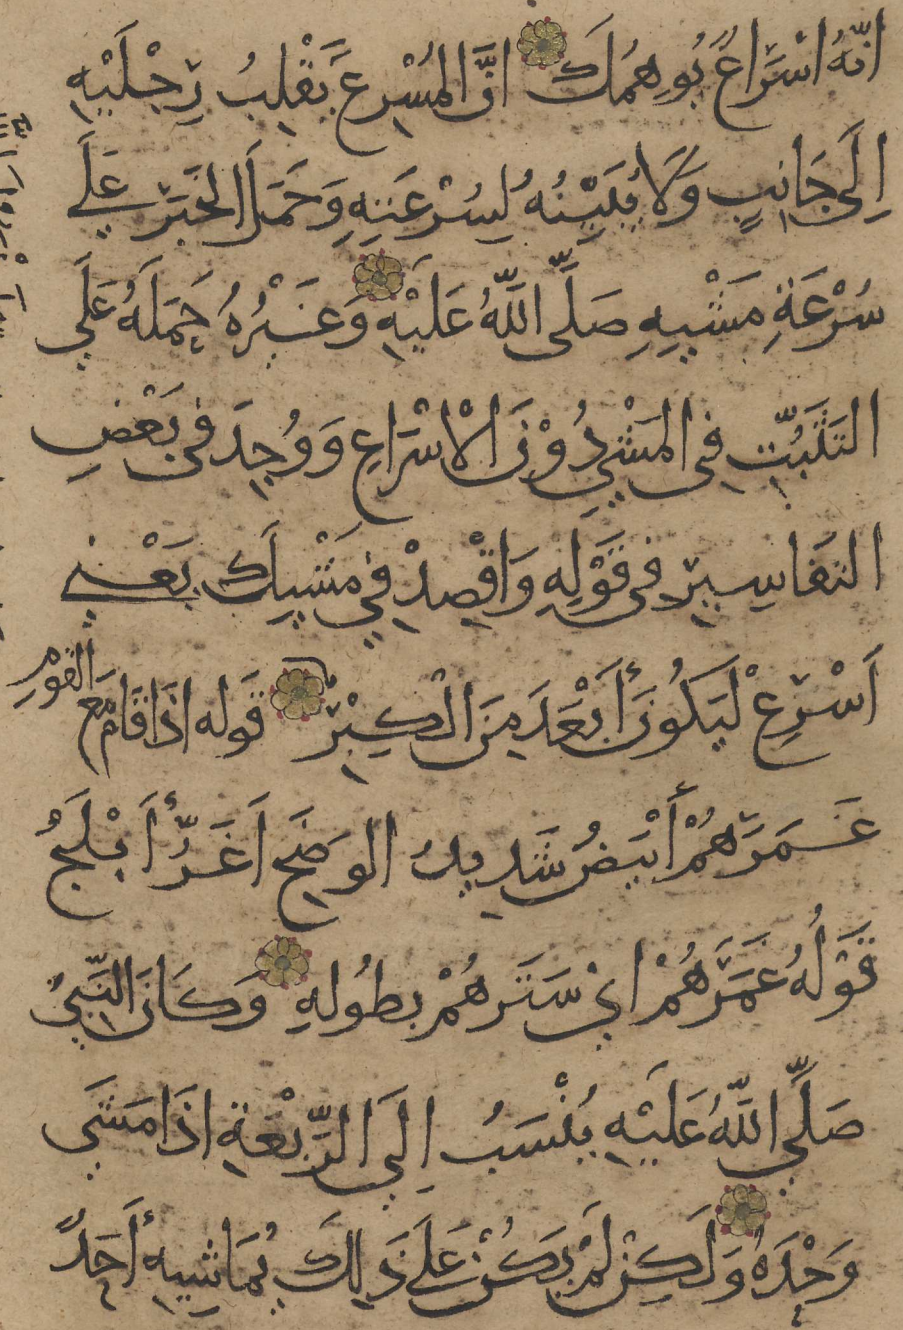 انّهُ اسْتَراعٌ يُوهِمُكَ انَّ المُسْرِعَ يَقْلِبُ رِجْلَيْهِ
اِلَى جَانِبٍ وَلَا يُبَيِّنُهُ لِسُرْعَتِهِ وَحَمَلَ الخَبَرَ عَلَى
سُرْعَةِ مَشْيِهِ صَلَّى اللّهُ عَلَيْهِ وَغَيْرُهُ حَمَلَهُ عَلَى
التَثَبُّتِ فِى المَشْىِ دُوْنَ الْاسْرَاعِ وَوُجِدَ فى بَعْضِ
التفَاسِيرِ فى قَوْلِهِ وَاقْصِدْ فِي مَشْيِكَ يَعْنِي
اَسْرِعْ لَيَكُونَ أَبْعَدَ مِنَ الْكِبْرِ قَوله اذَا قَامَ مَعَ القَوْمِ
غَمَرَهُمْ أَبْيَضُ شَدِيدُ الوَضَحِ اَغَرُّ أَبْلَجُ
قَوْلُهُ غَمَرَهُمْ اىْ سَتَرهُمْ بطُولِهِ وَكَانَ النَّبِيُّ
صَلَّى اللّهُ عَلَيْهِ يُنْسَبُ اِلَى الرَّبْعَةِ اذَا مَشَى
وَحْدَهُ وَلَكِنْ لَمْ يَكُنْ عَلَى ذَلِكَ يُمَاشِيهِ أَحَدٌ